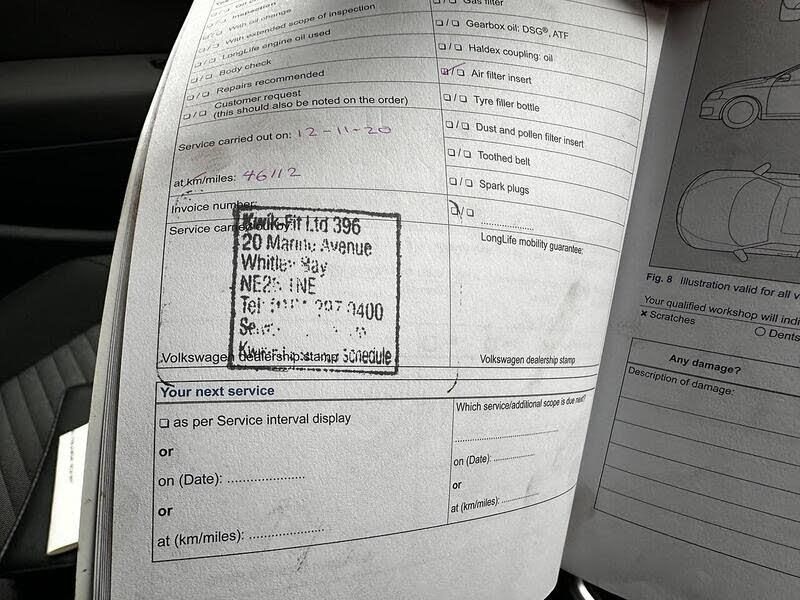 Inspection
With oil change
With extended scope of inspection
LongLife engine oil used
Body check
Repairs recommended
Customer request
(this should also be noted on the order)
Service carried out on: 12-11-20
at km/miles: 46112
Invoice number:
Service carried out by:
Kwik-Fit Ltd 396
20 Marine Avenue
Whitley Bay
NE26 1NE
Tel: 297 0400
Schedule
Volkswagen dealership stamp
Gas filter
Gearbox oil: DSG®, ATF
Haldex coupling: oil
Air filter insert
Tyre filler bottle
Dust and pollen filter insert
Toothed belt
Spark plugs
LongLife mobility guarantee:
Volkswagen dealership stamp
Your next service
as per Service interval display
or
on (Date):
or
at (km/miles):
Which service/additional scope is due next?
on (Date):
or
at (km/miles):
Fig. 8 Illustration valid for all v
Your qualified workshop will indi
× Scratches
Dents
Any damage?
Description of damage: